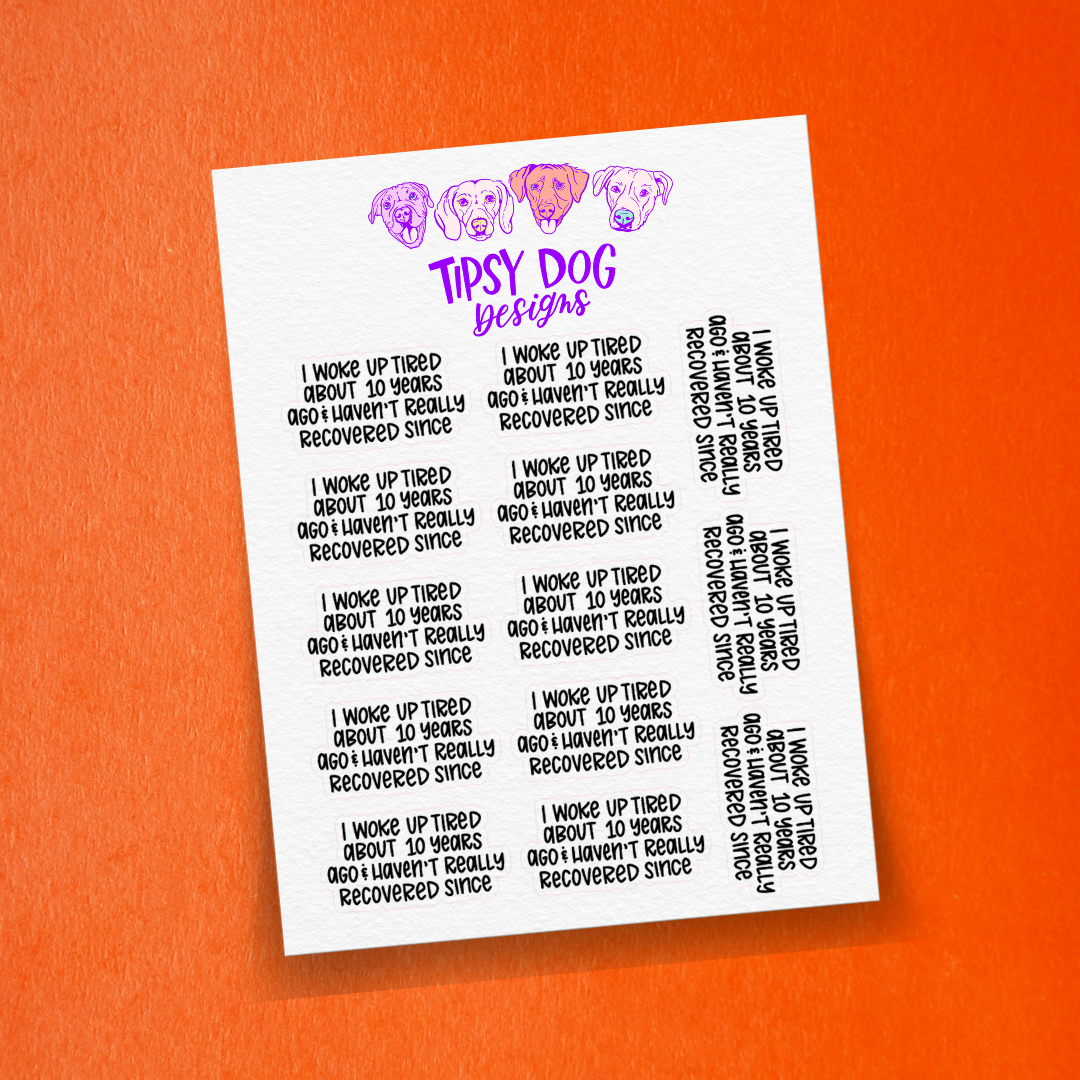 TIPSY DOG
Designs
I WOKE UP TIRED
ABOUT 10 YEARS
AGO & HAVEN'T REALLY
RECOVERED SINCE
I WOKE UP TIRED
ABOUT 10 YEARS
AGO & HAVEN'T REALLY
RECOVERED SINCE
I WOKE UP TIRED
ABOUT 10 YEARS
AGO & HAVEN'T REALLY
RECOVERED SINCE
I WOKE UP TIRED
ABOUT 10 YEARS
AGO & HAVEN'T REALLY
RECOVERED SINCE
I WOKE UP TIRED
ABOUT 10 YEARS
AGO & HAVEN'T REALLY
RECOVERED SINCE
I WOKE UP TIRED
ABOUT 10 YEARS
AGO & HAVEN'T REALLY
RECOVERED SINCE
I WOKE UP TIRED
ABOUT 10 YEARS
AGO & HAVEN'T REALLY
RECOVERED SINCE
I WOKE UP TIRED
ABOUT 10 YEARS
AGO & HAVEN'T REALLY
RECOVERED SINCE
I WOKE UP TIRED
ABOUT 10 YEARS
AGO & HAVEN'T REALLY
RECOVERED SINCE
I WOKE UP TIRED
ABOUT 10 YEARS
AGO & HAVEN'T REALLY
RECOVERED SINCE
I WOKE UP TIRED
ABOUT 10 YEARS
AGO & HAVEN'T REALLY
RECOVERED SINCE
I WOKE UP TIRED
ABOUT 10 YEARS
AGO & HAVEN'T REALLY
RECOVERED SINCE
I WOKE UP TIRED
ABOUT 10 YEARS
AGO & HAVEN'T REALLY
RECOVERED SINCE